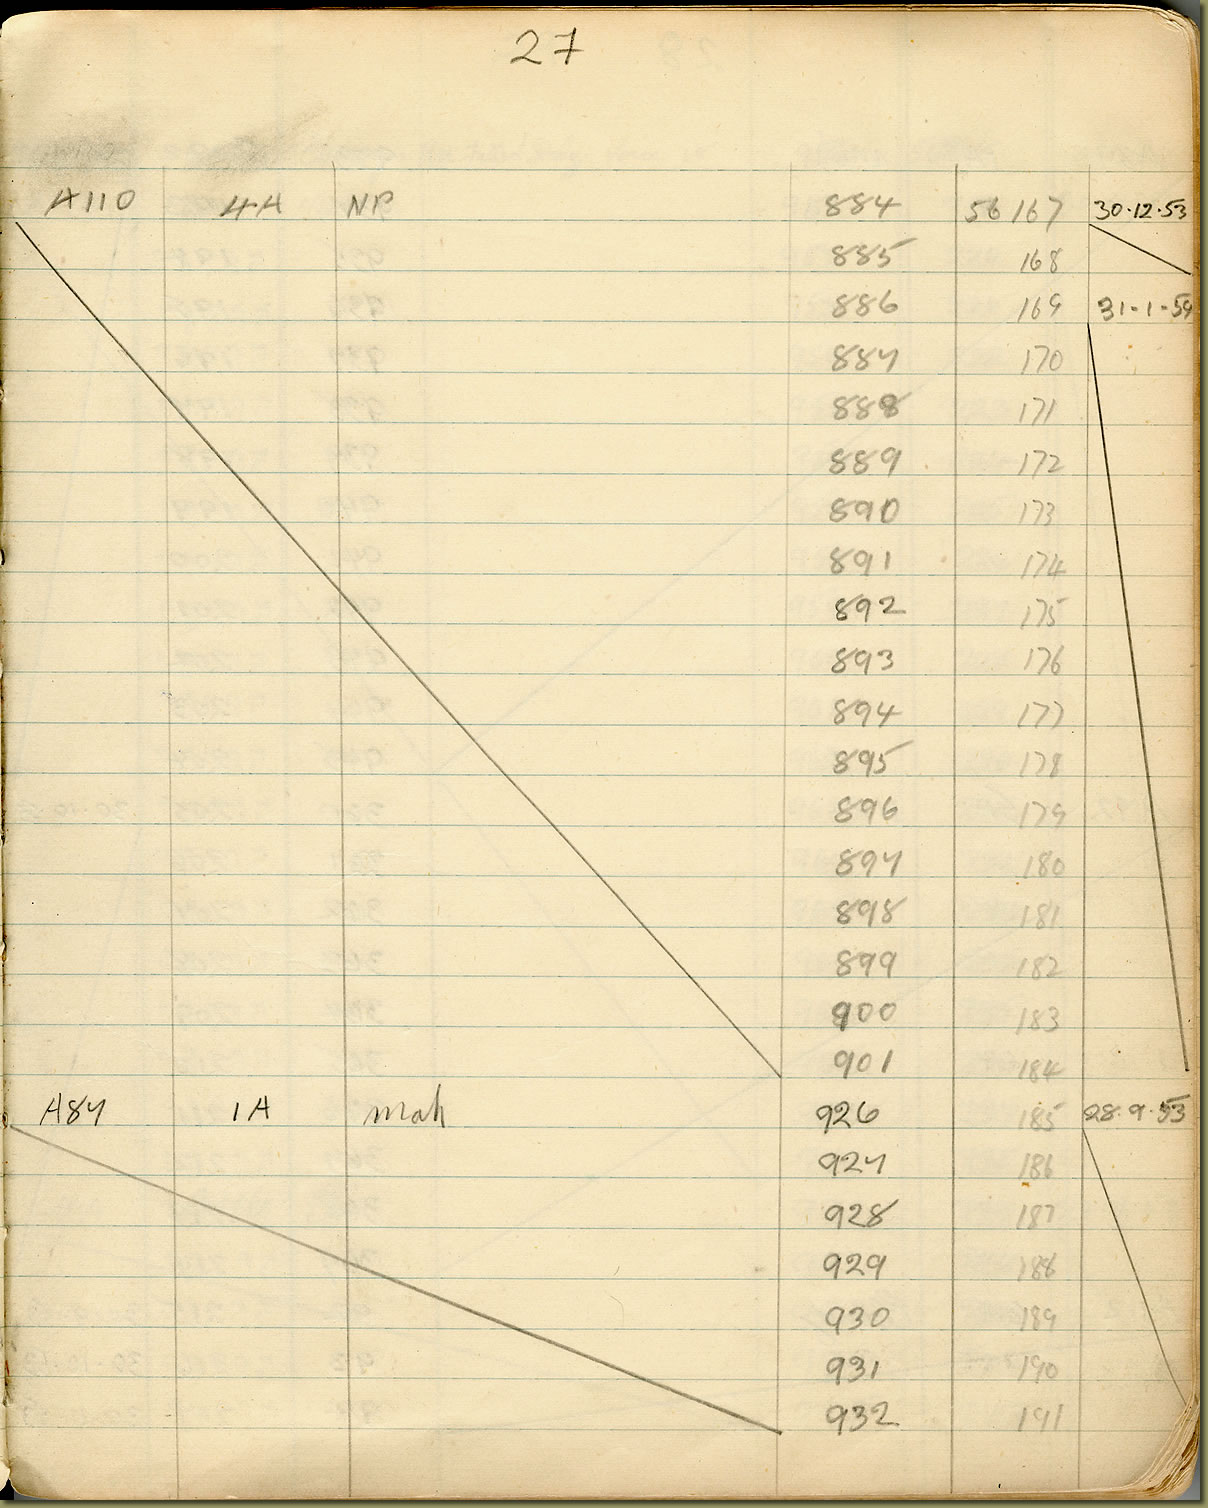 27
A110 4A NP 884 56 167 30.12.53
885 168
886 169 31-1-54
887 170
888 171
889 172
890 173
891 174
892 175
893 176
894 177
895 178
896 179
897 180
898 181
899 182
900 183
901 184
A87 1A Mah 926 185 28.9.53
927 186
928 187
929 188
930 189
931 190
932 191